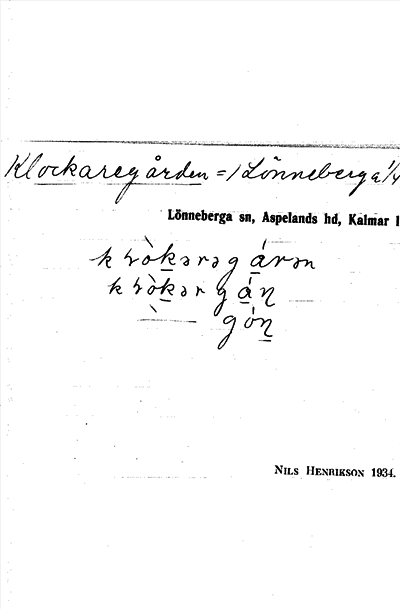 Klockaregården = / Lönneberga 1/4
Lönneberga sn, Aspelands hd, Kalmar l
k ɽòkərəgárən
k ɽòkər gáɳ
— góɳ
NILS HENRIKSON 1934.